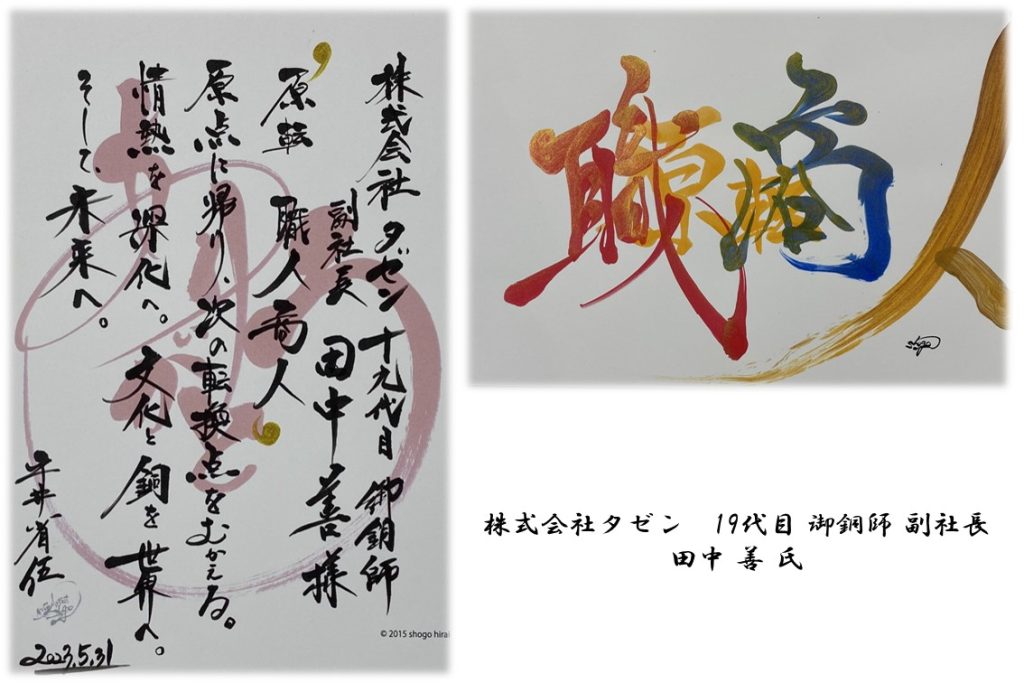 株式会社タゼン 十九代目 御銅師
副社長 田中 善様
原転 職人商人
原点に帰り、次の転換点をむかえる。
情熱を深化へ。文化と銅を世界へ。
そして、未来へ。
平井省伍
2023.5.31
© 2015 shogo hirai
職商人
原転
shogo
株式会社タゼン 19代目 御銅師 副社長
田中 善 氏